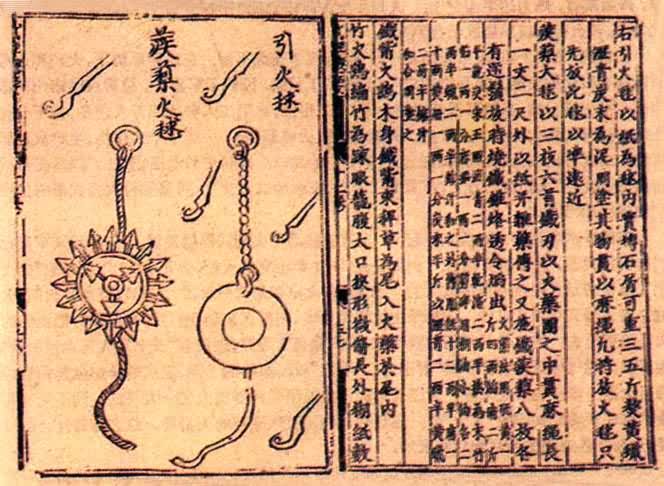 右引火毬以紙為毬內實塼石屑可重三五斤熬黃蠟
瀝青炭末為泥周塗其物貫以麻繩凡將放火毬只
先放此毬以準遠近
蒺藜火毬以三枝六首鐵刃以火藥團之中貫麻繩長
一丈二尺外以紙并雜藥傅之又施鐵蒺藜八枚各
有逆鬚放時燒鐵錐烙透令焰出
火藥法用硫黃一
斤四兩焰硝二斤
半麤炭末五兩瀝青二兩半乾漆二兩半搗為末竹
茹一兩一分麻茹一兩一分剪碎用桐油小油各二
兩半蠟二兩半鎔汁和之外傅用紙十二兩半麻一
十兩黃丹一兩一分炭末半斤以瀝青二兩半黃蠟
二兩半鎔汁
和合周塗之
鐵嘴火鷂木身鐵嘴束稈草為尾入火藥於尾內
竹火鷂編竹為疎眼籠腹大口狹形微修長外糊紙數
引火毬
蒺藜火毬